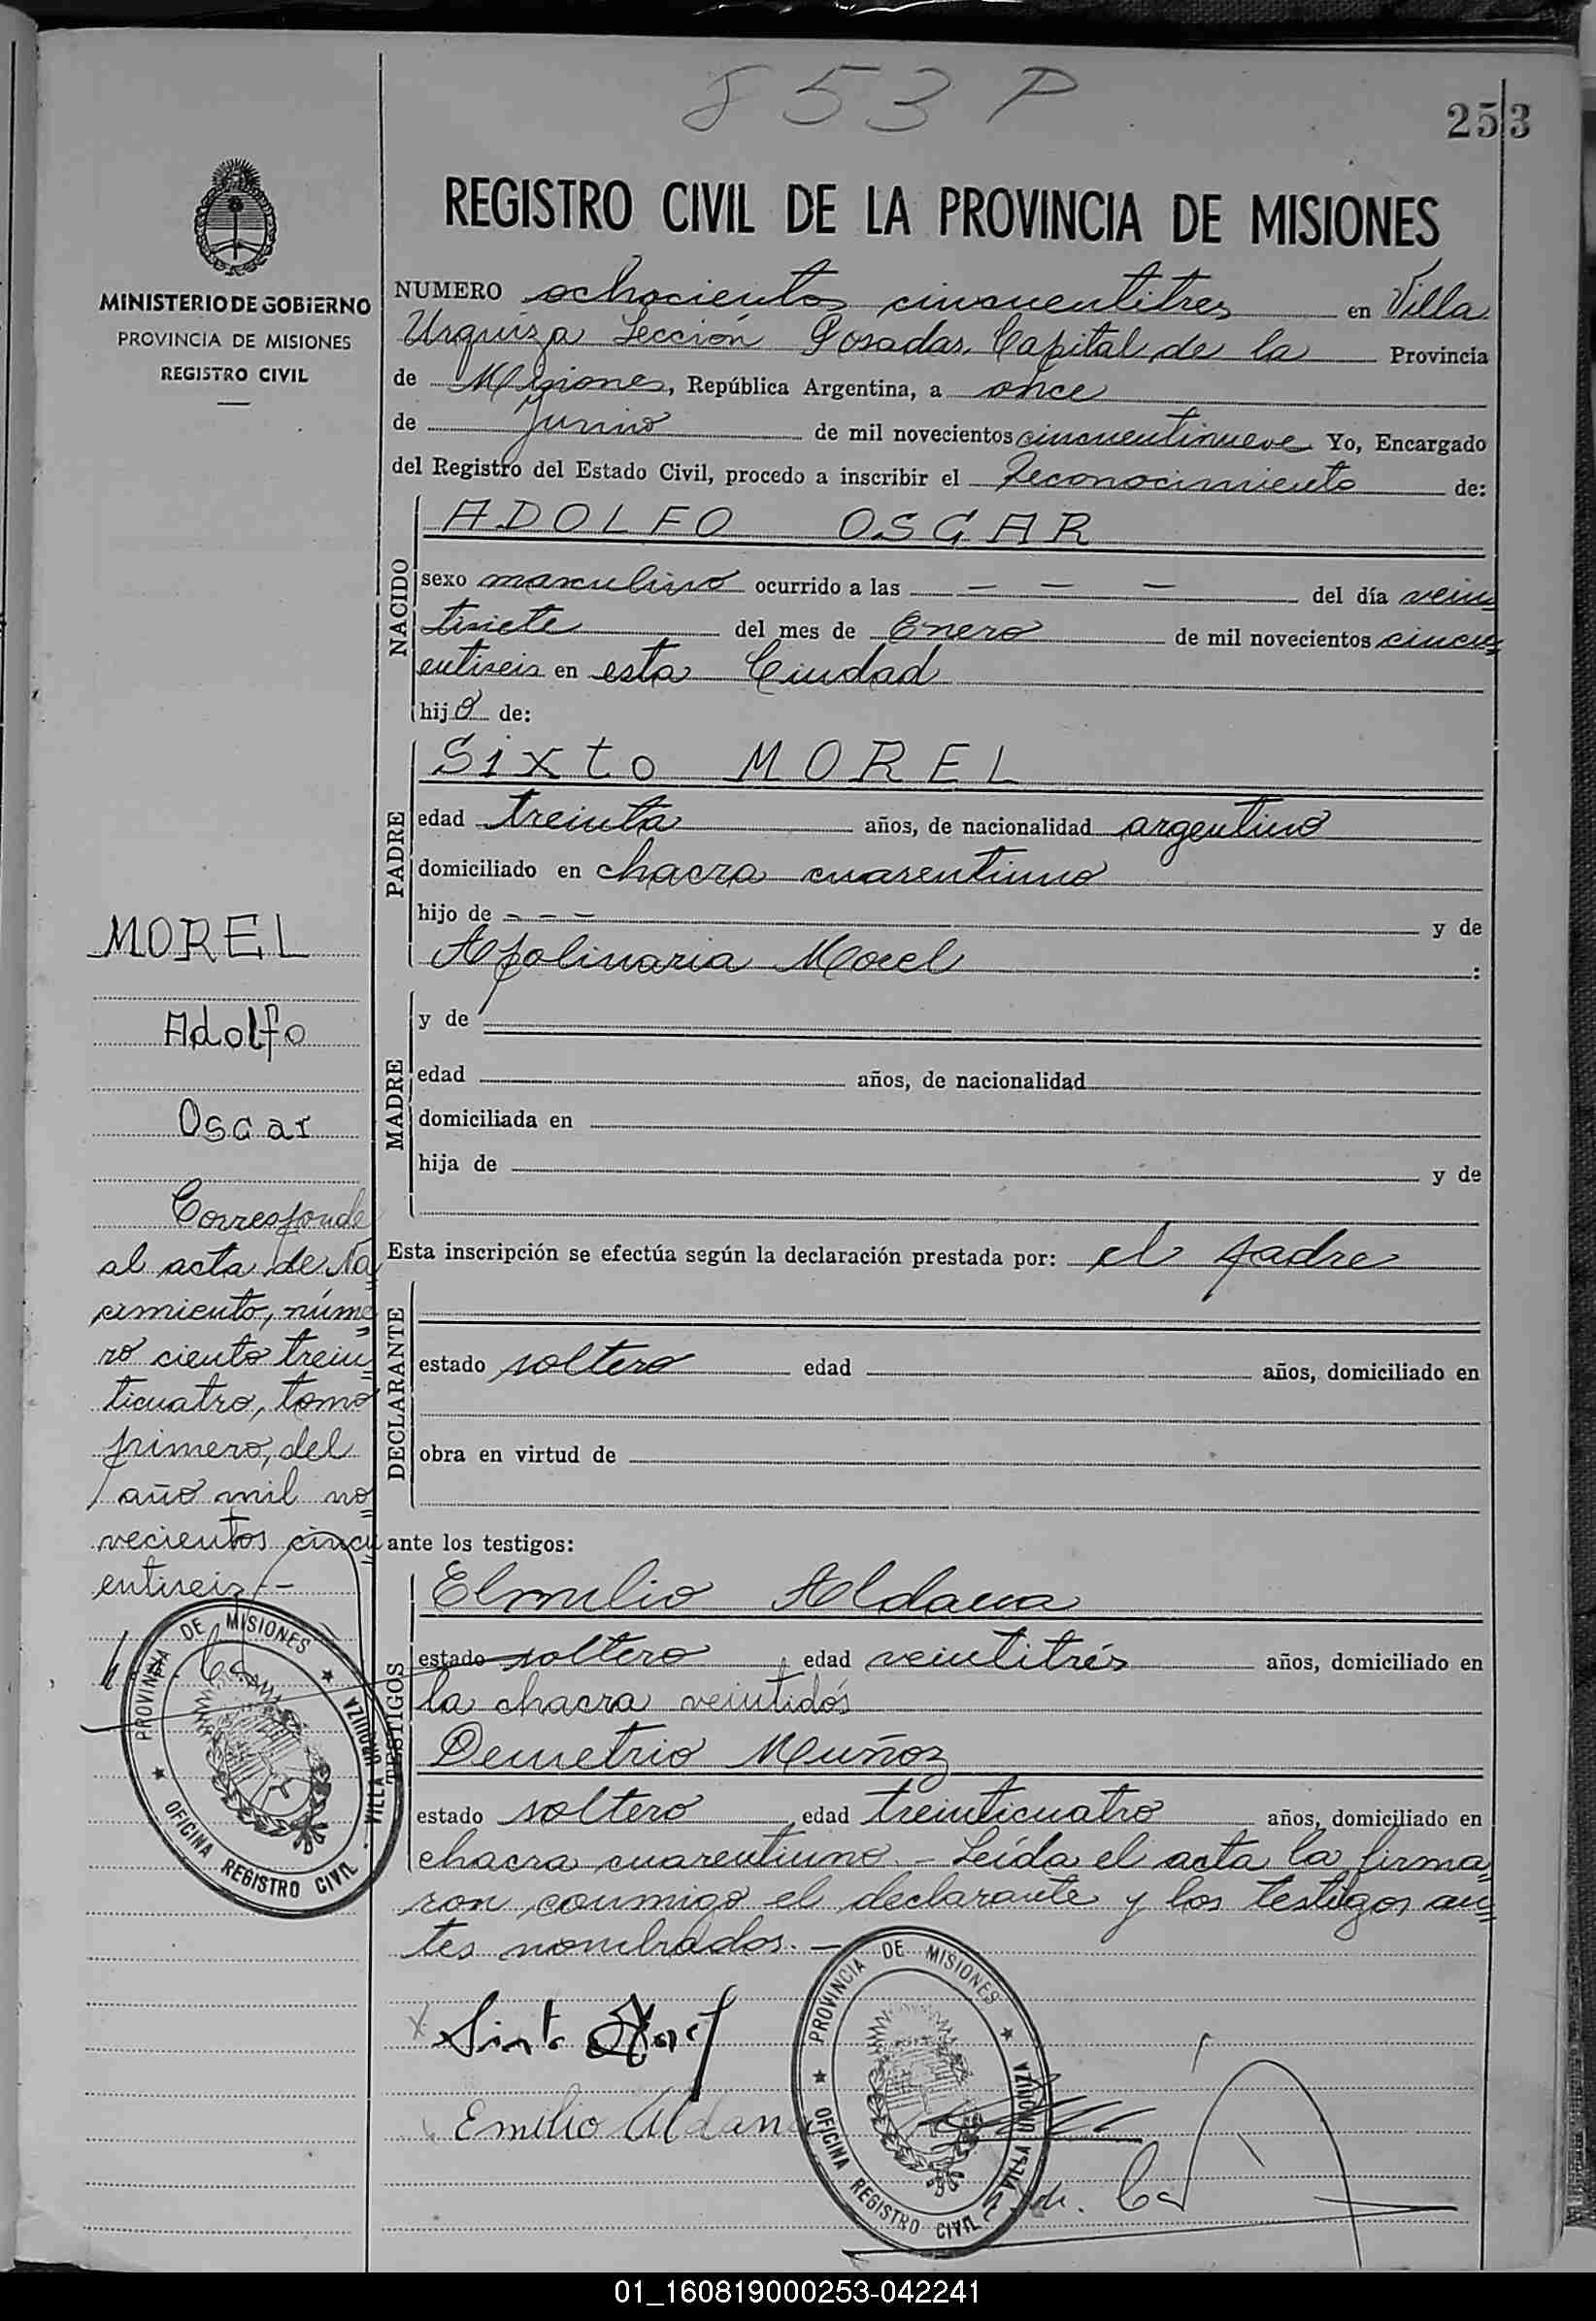 853 P
253
REGISTRO CIVIL DE LA PROVINCIA DE MISIONES
MINISTERIO DE GOBIERNO
PROVINCIA DE MISIONES
REGISTRO CIVIL
NUMERO ochocientos cincuentitres en Villa
Urquiza Sección Posadas, Capital de la Provincia
de Misiones, República Argentina, a once
de Junio de mil novecientos cincuentinueve Yo, Encargado
del Registro del Estado Civil, procedo a inscribir el Reconocimiento de:
NACIDO
ADOLFO OSCAR
sexo masculino ocurrido a las — — — del día vein
tisiete del mes de Enero de mil novecientos cincu
entiseis en esta Ciudad
hijo de:
PADRE
Sixto MOREL
edad treinta años, de nacionalidad argentino
domiciliado en chacra cuarentiuno
hijo de - - - y de
Apolinaria Morel :
MADRE
y de
edad años, de nacionalidad
domiciliada en
hija de y de
Esta inscripción se efectúa según la declaración prestada por: el padre
DECLARANTE
estado soltero edad años, domiciliado en
obra en virtud de
ante los testigos:
TESTIGOS
Elmulio Aldana
estado soltero edad veintitrés años, domiciliado en
la chacra veintidós
Demetrio Muñoz
estado soltero edad treinticuatro años, domiciliado en
chacra cuarentiuno.- Leída el acta la firma
ron conmigo el declarante y los testigos an
tes nombrados.—
MOREL
Adolfo
Oscar
Corresponde
al acta de Na
cimiento, núme
ro ciento trein
ticuatro, tomo
primero, del
año mil no
vecientos cincu
entiseis.-
PROVINCIA DE MISIONES
OFICINA REGISTRO CIVIL - VILLA URQUIZA
x Sixto Morel
Emilio Aldana
PROVINCIA DE MISIONES
OFICINA REGISTRO CIVIL VILLA URQUIZA
01_160819000253-042241